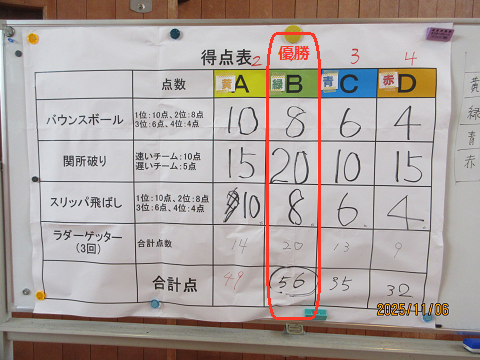 得点表 2 優勝 3 4
点数 黄A 緑B 青C 赤D
バウンスボール 1位：10点、2位：8点 10 8 6 4
3位：6点、4位：4点
関所破り 速いチーム：10点 15 20 10 15
遅いチーム：5点
スリッパ飛ばし 1位：10点、2位：8点 10 8 6 4
3位：6点、4位：4点
ラダーゲッター 合計点数 14 20 13 9
(3回)
合計点 49 56 35 32
黄
緑
青
赤
2025/11/06